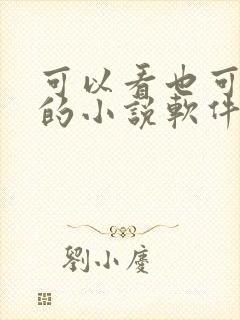 可以看也可
的小說軟件
劉小慶